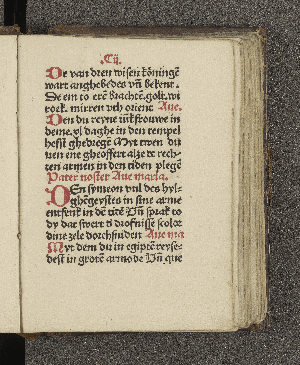 .Cij.
De van dren wisen kōningē
wart anghebedes vn̄ bekent.
De em to erē brachtē. golt. wi
roek. mirren vth orient Aue.
Den du reyne iūkfrouwe in
deme. xl daghe in den tempel
hefst ghedregē Myt twen du
uen ene gheoffert alze de rech-
ten armen in den tiden plegē
Pater noster Aue maria.
DEn symeon vul des hyl-
ghē geystes in sine arme
entfenk in dē tēpel Vn̄ sprak to
dy dat swert d' drofnisse scolde
dine zele dorchsniden Aue ma
Myt dem du in egiptē reyse-
dest in grotē armode Vn̄ que